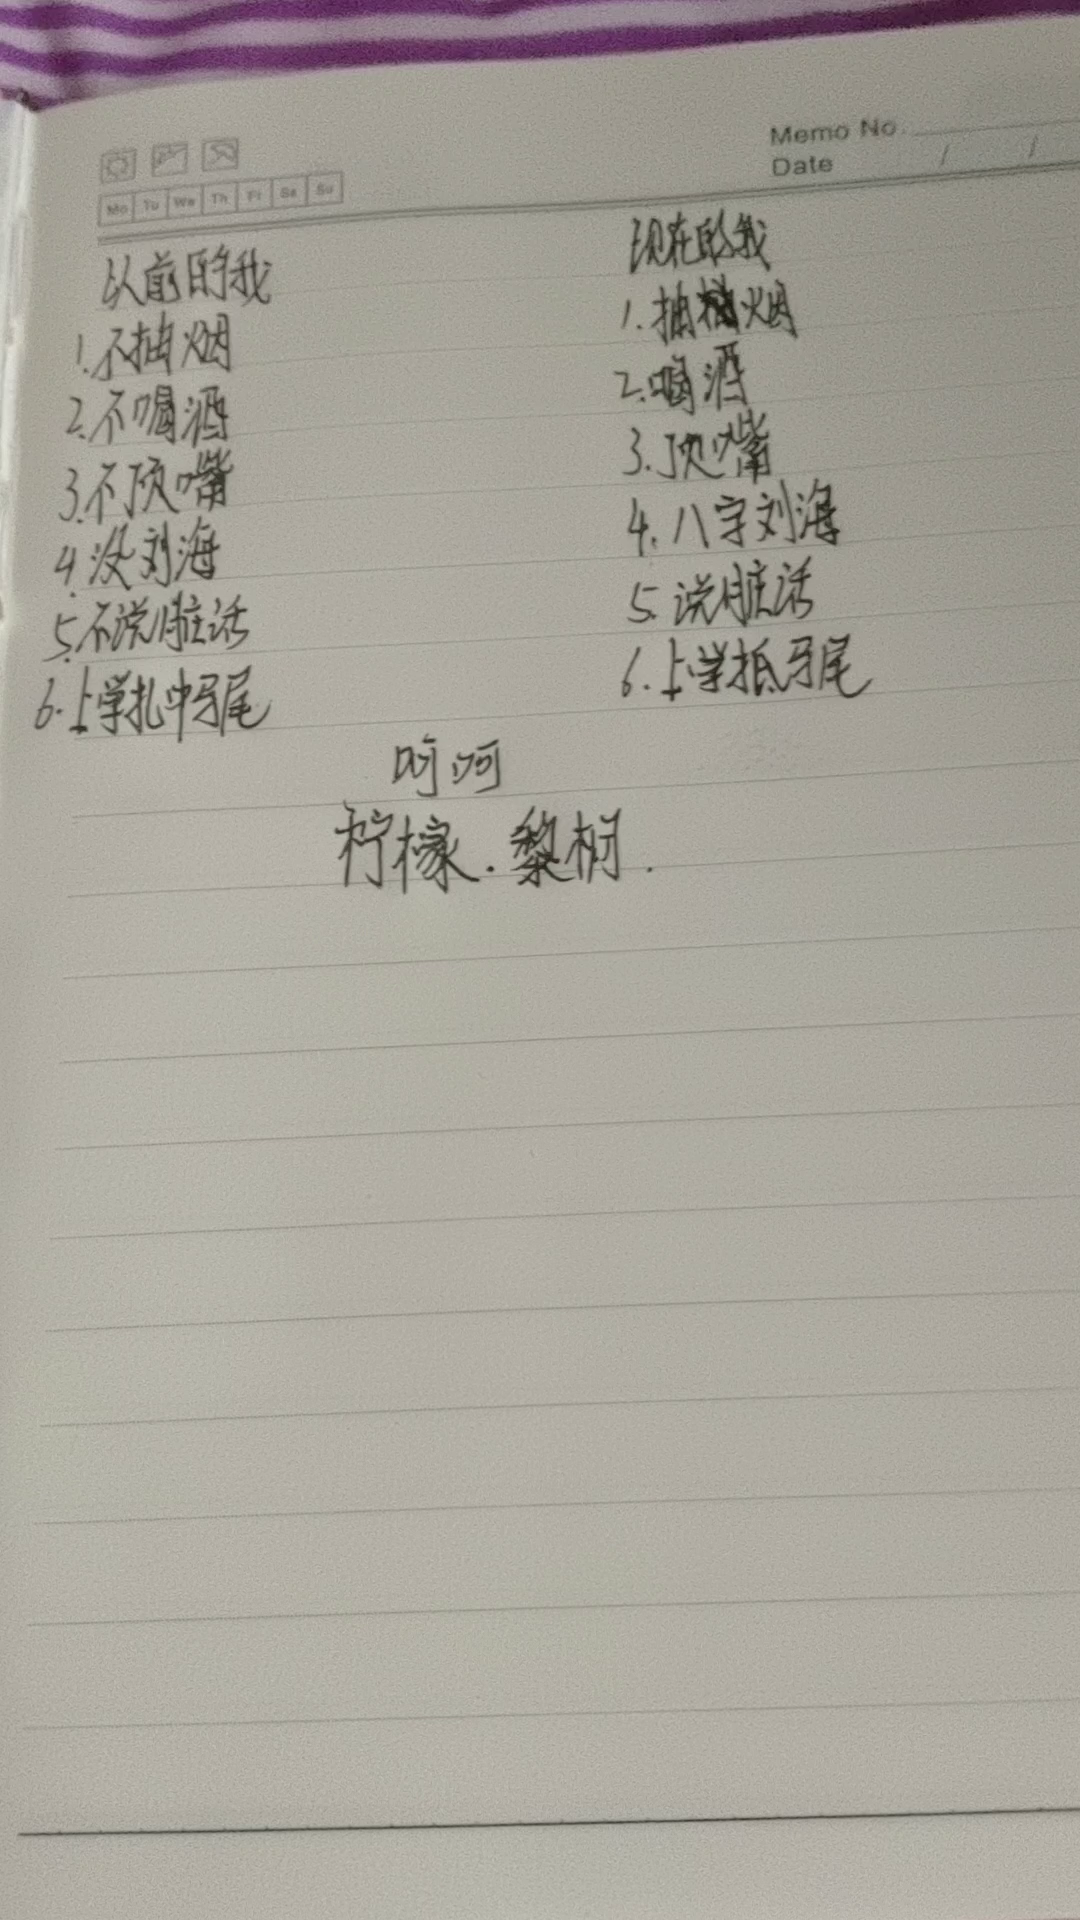 Memo No.
Date / /
Mo Tu We Th Fr Sa Su
以前的我
1.不抽烟
2.不喝酒
3.不顶嘴
4.没刘海
5.不说脏话
6.上学扎中马尾
现在的我
1.抽烟
2.喝酒
3.顶嘴
4.八字刘海
5.说脏话
6.上学扎低马尾
呵呵
柠檬.黎树.